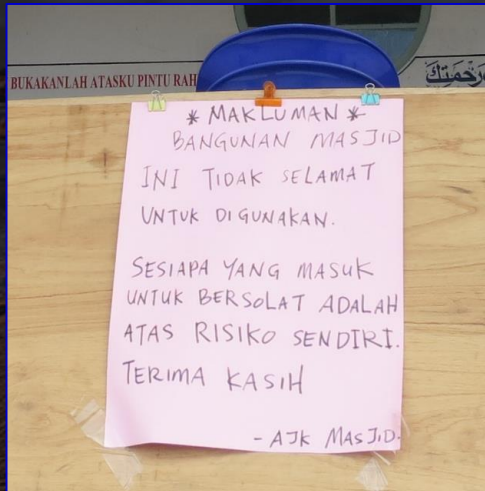 BUKAKANLAH ATASKU PINTU RAH
* MAKLUMAN *
BANGUNAN MASJID
INI TIDAK SELAMAT
UNTUK DIGUNAKAN.
SESIAPA YANG MASUK
UNTUK BERSOLAT ADALAH
ATAS RISIKO SENDIRI.
TERIMA KASIH
- AJK MASJID.